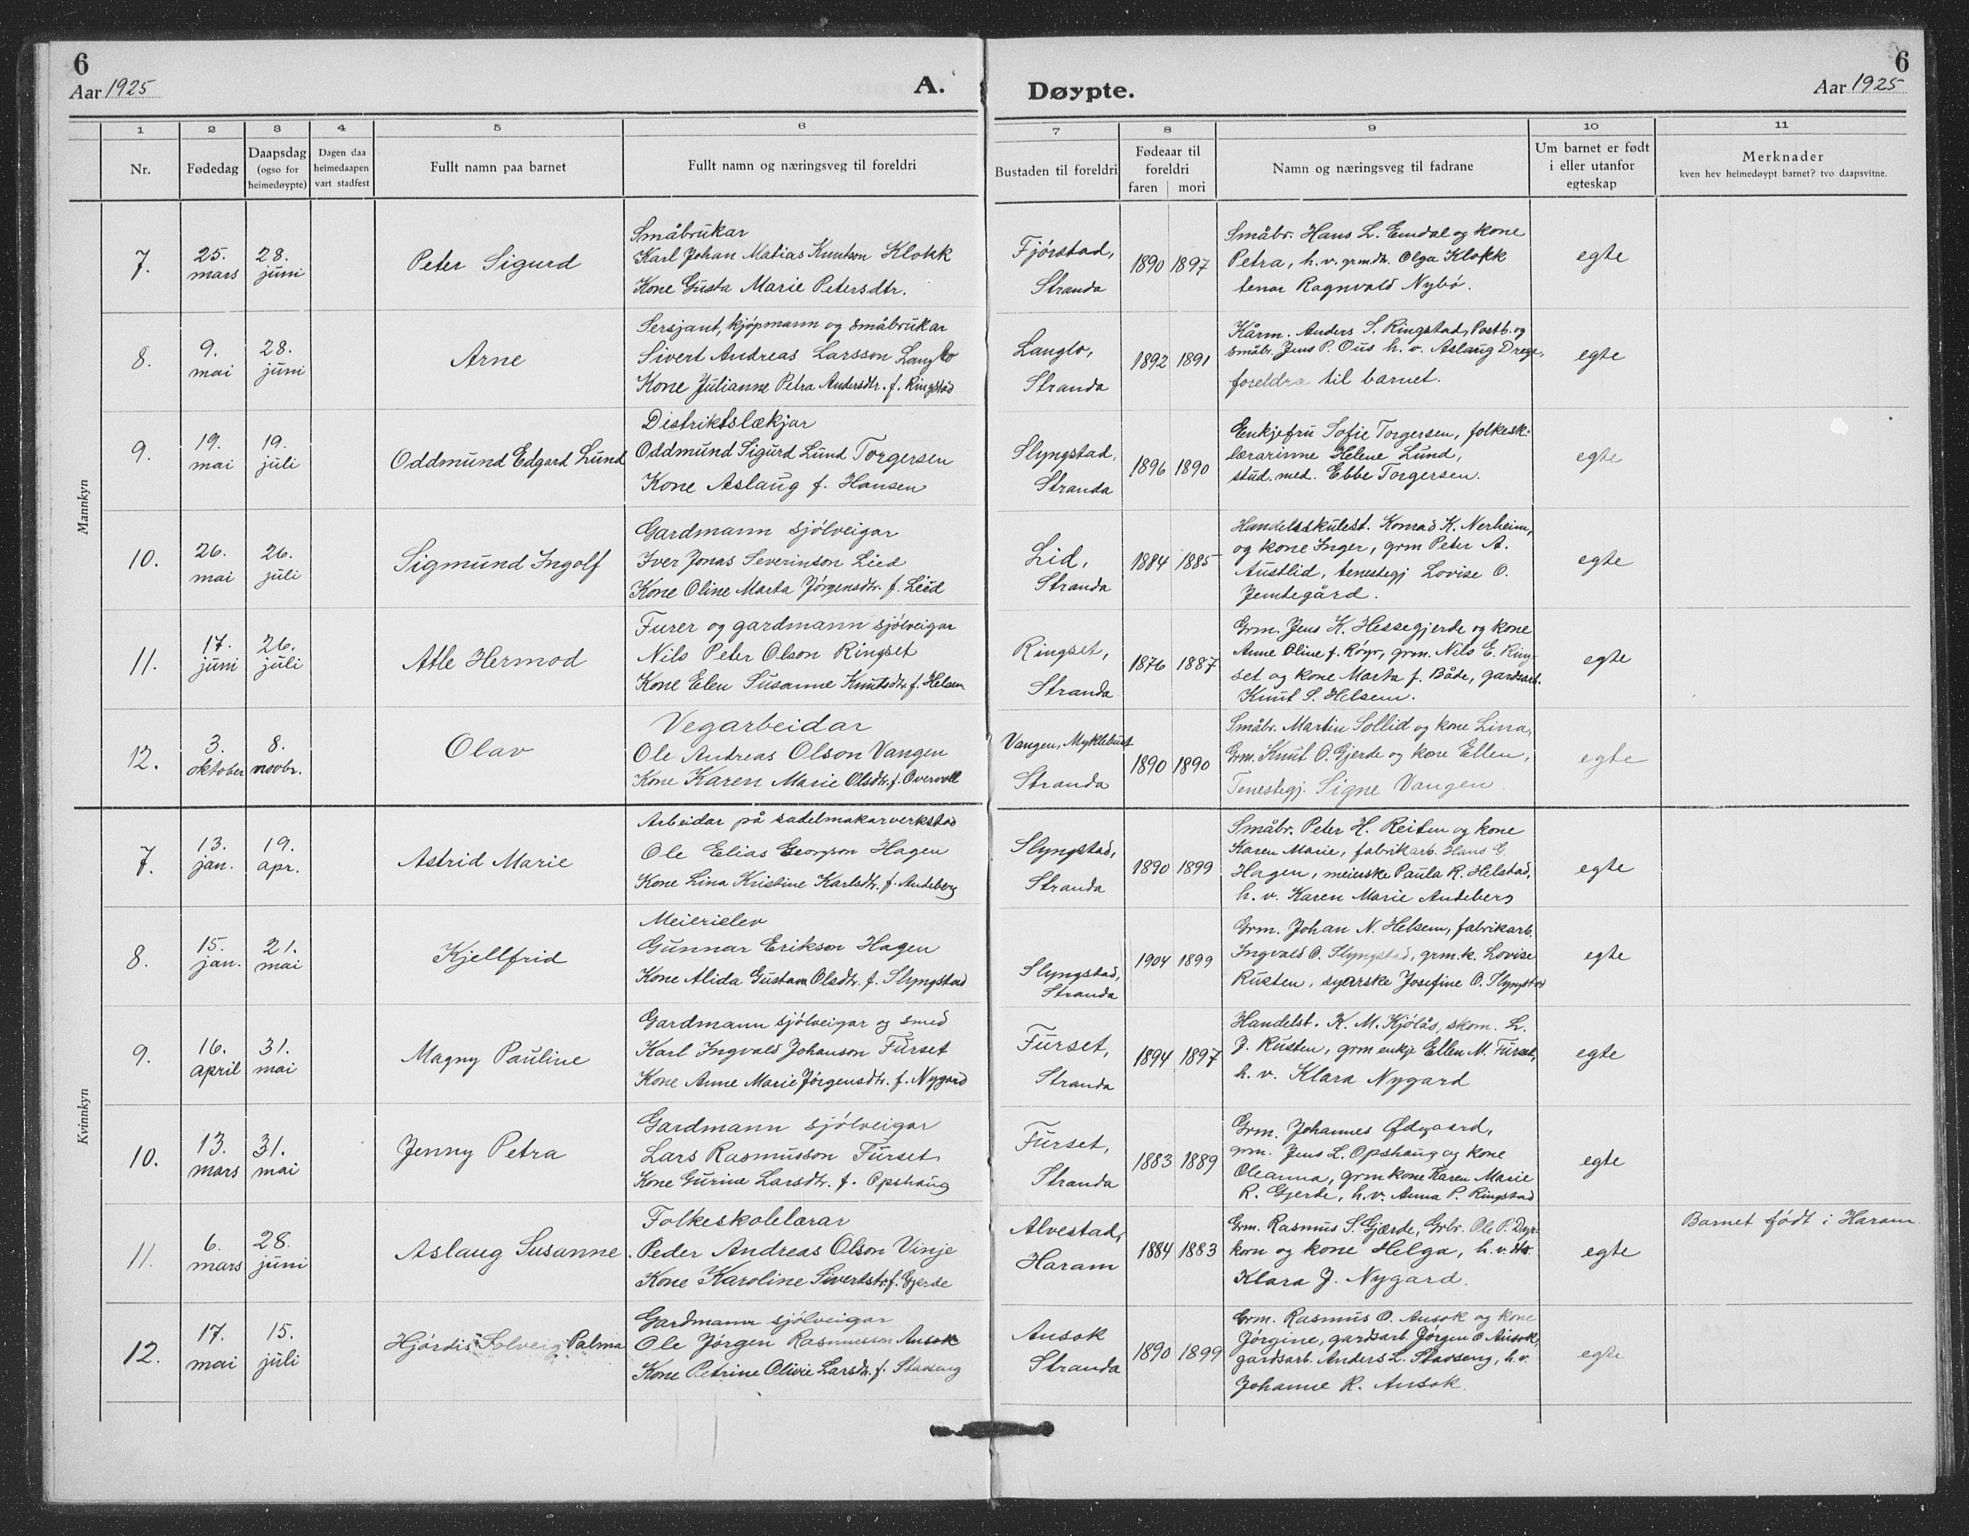 6
Aar 1925
A.
Døypte.
6
Aar 1925
1 2 3 4 5 6 7 8 9 10 11
Nr.
Fødedag
Daapsdag
(ogso for
heimedøypte)
Dagen daa
heimedaapen
vart stadfest
Fullt namn paa barnet
Fullt namn og næringsveg til foreldri
Bustaden til foreldri
Fødeaar til
foreldri
faren mori
Namn og næringsveg til fadrane
Um barnet er født
i eller utanfor
egteskap
Merknader
kven hev heimedøypt barnet? tvo daapsvitne.
Mannkyn
7.
25.
mars
28.
juni
Peter Sigurd
Småbrukar
Karl Johan Matias Knutson Klokk
Kone Gusta Marie Petersdtr.
Fjørstad,
Stranda
1890 1897
Småbr. Hans L. Emdal og kone
Petra, h. v. grmdtr. Olga Klokk
tenar Ragnvald Nybø.
egte
8.
9.
mai
28.
juni
Arne
Sersjant, kjøpmann og småbrukar
Sivert Andreas Larsson Langlo
Kone Julianne Petra Andersdtr. f. Ringstad
Langlo,
Stranda
1892 1891
Kårm. Anders S. Ringstad, Postb. og
småbr. Jens P. Ous h. v. Aslaug Drege,
foreldra til barnet.
egte
9.
19.
mai
19.
juli
Oddmund Edgard Lund
Distriktslækjar
Oddmund Sigurd Lund Torgersen
Kone Aslaug f. Hansen
Slyngstad,
Stranda
1896 1890
Enkjefru Sofie Torgersen, folkesk.
lærarinne Helene Lund,
stud. med. Ebbe Torgersen.
egte
10.
26.
mai
26.
juli
Sigmund Ingolf
Gardmann sjølveigar
Iver Jonas Severinson Lied
Kone Oline Marta Jørgensdtr. f. Lied
Lid,
Stranda
1884 1885
Handelsskulest. Konrad K. Nerheim,
og kone Inger, grm Peter A.
Austlid, tenestegj Lovise O.
Jemtegård.
egte
11.
17.
juni
26.
juli
Atle Hermod
Furer og gardmann sjølveigar
Nils Peter Olson Ringset
Kone Elen Susanne Knutsdtr. f. Helsem
Ringset,
Stranda
1876 1887
Grm. Jens K. Hessegjerde og kone
Anne Oline f. Røyr, grm. Nils E. Ring-
set og kone Marta f. Både, gardsarb.
Knut S. Helsem.
egte
12.
3.
oktober
8.
novbr.
Olav
Vegarbeidar
Ole Andreas Olson Vangen
Kone Karen Marie Olsdtr. f. Overvoll
Vangen, Myklebust
Stranda
1890 1890
Småbr. Martin Sollid og kone Lina,
Grm. Knut O. Gjerde og kone Ellen,
Tenestegj. Signe Vangen.
egte
Kvinnkyn
7.
13.
jan.
19.
apr.
Astrid Marie
Arbeidar på sadelmakarverkstad
Ole Elias Georgson Hagen
Kone Lina Kristine Karlsdtr. f. Andeberg
Slyngstad,
Stranda
1890 1899
Småbr. Peter H. Reiten og kone
Karen Marie, fabrikarb. Hans G.
Hagen, meierske Paula R. Helstad,
h. v. Karen Marie Andeberg
egte
8.
15.
jan.
21.
mai
Kjellfrid
Meierielev
Gunnar Erikson Hagen
Kone Alida Gustava Olsdtr. f. Slyngstad
Slyngstad,
Stranda
1904 1899
Grm. Johan N. Helsem, fabrikarb.
Ingvald O. Slyngstad, grm.k. Lovise
Rusten, syerske Josefine O. Slyngstad
egte
9.
16.
april
31.
mai
Magny Pauline
Gardmann sjølveigar og smed
Karl Ingvald Johanson Furset
Kone Anne Marie Jørgensdtr. f. Nygard
Furset,
Stranda
1894 1897
Handelst. K. M. Kjølås, skom. L.
J. Rusten, grm enkje Ellen M. Furset,
h. v. Klara Nygard
egte
10.
13.
mars
31.
mai
Jenny Petra
Gardmann sjølveigar
Lars Rasmusson Furset
Kone Gurine Larsdtr. f. Opshaug
Furset,
Stranda
1883 1889
Grm. Johannes Ødegaard,
grm. Jens L. Opshaug og kone
Oleanna, grmkone Karen Marie
R. Gjerde, h. v. Anna P. Ringstad
egte
11.
6.
mars
28.
juni
Aslaug Susanne
Folkeskolelærar
Peder Andreas Olson Vinje
Kone Karoline Sivertsdtr. f. Gjerde
Alvestad,
Haram
1884 1883
Grm. Rasmus S. Gjærde, Grbr. Ole P. Dyr-
korn og kone Helga, h. v.
Klara J. Nygard.
egte
Barnet født i Haram
12.
17.
mai
15.
juli
Hjørdis Solveig Palma
Gardmann sjølveigar
Ole Jørgen Rasmusson Ansok
Kone Petrine Olivie Larsdtr. f. Stavseng
Ansok
Stranda
1890 1899
Grm. Rasmus O. Ansok og kone
Jørgine, gardsarb. Jørgen O. Ansok,
gardsarb. Anders L. Stavseng, h. v.
Johanne R. Ansok.
egte